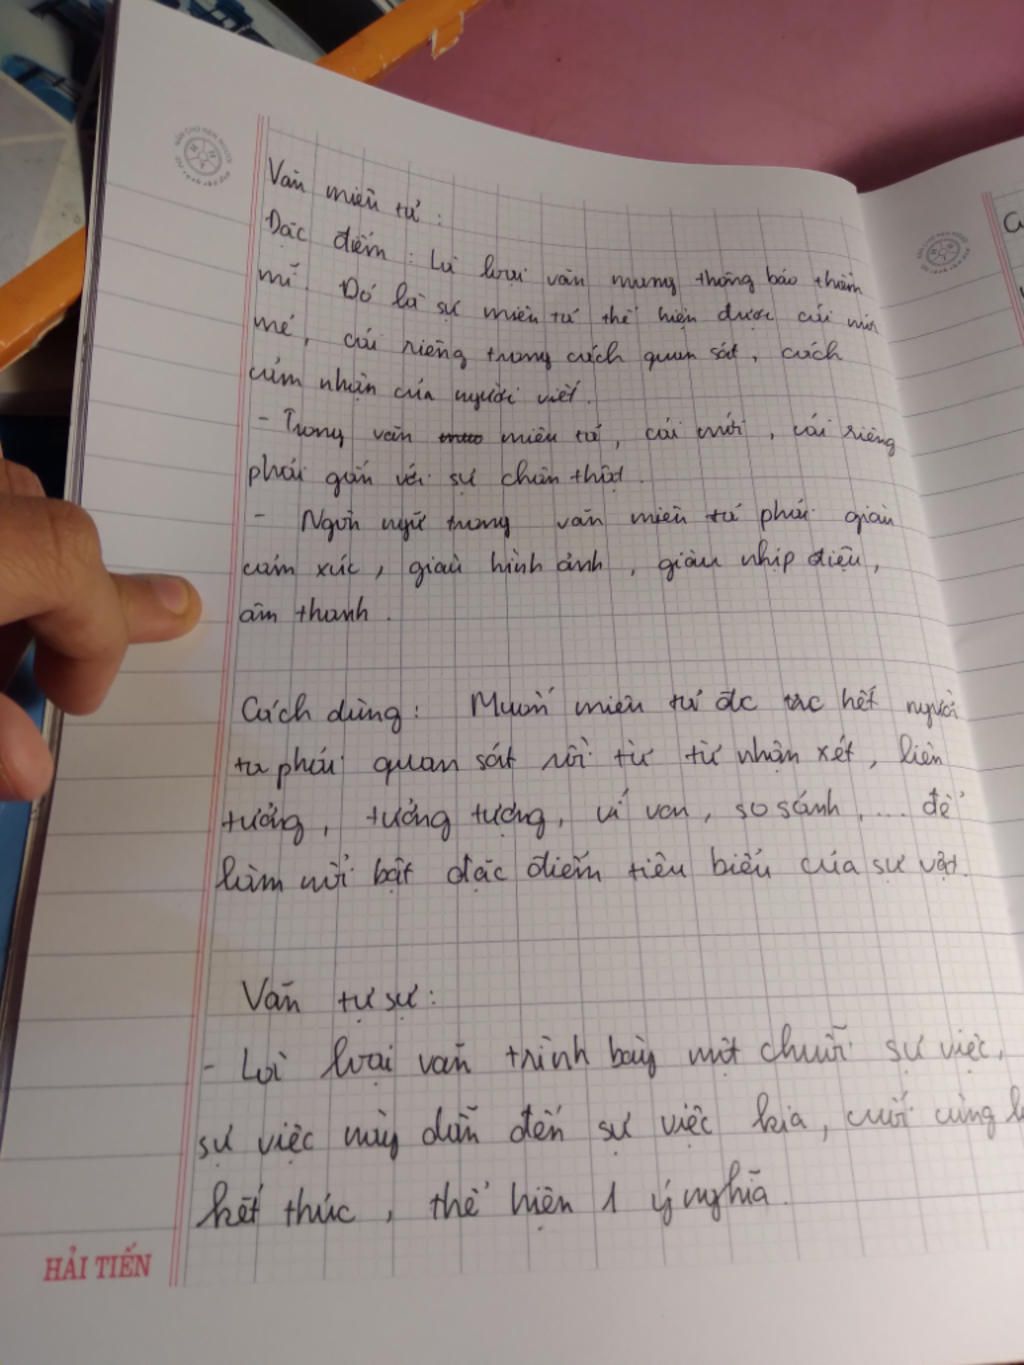 Văn miêu tả :
Đặc điểm : Là loại văn mang thông báo thẩm
mĩ. Đó là sự miêu tả thể hiện được cái mới
mẻ, cái riêng trong cách quan sát, cách
cảm nhận của người viết.
- Trong văn miêu tả, cái mới, cái riêng
phải gắn với sự chân thật.
- Ngôn ngữ trong văn miêu tả phải giàu
cảm xúc, giàu hình ảnh, giàu nhịp điệu,
âm thanh.
Cách dùng: Muốn miêu tả đc trc hết người
ta phải quan sát rồi từ từ nhận xét, liên
tưởng, tưởng tượng, ví von, so sánh,... để
làm nổi bật đặc điểm tiêu biểu của sự vật.
Văn tự sự:
- Là loại văn trình bày một chuỗi sự việc,
sự việc này dẫn đến sự việc kia, cuối cùng
kết thúc, thể hiện 1 ý nghĩa.
HẢI TIẾN